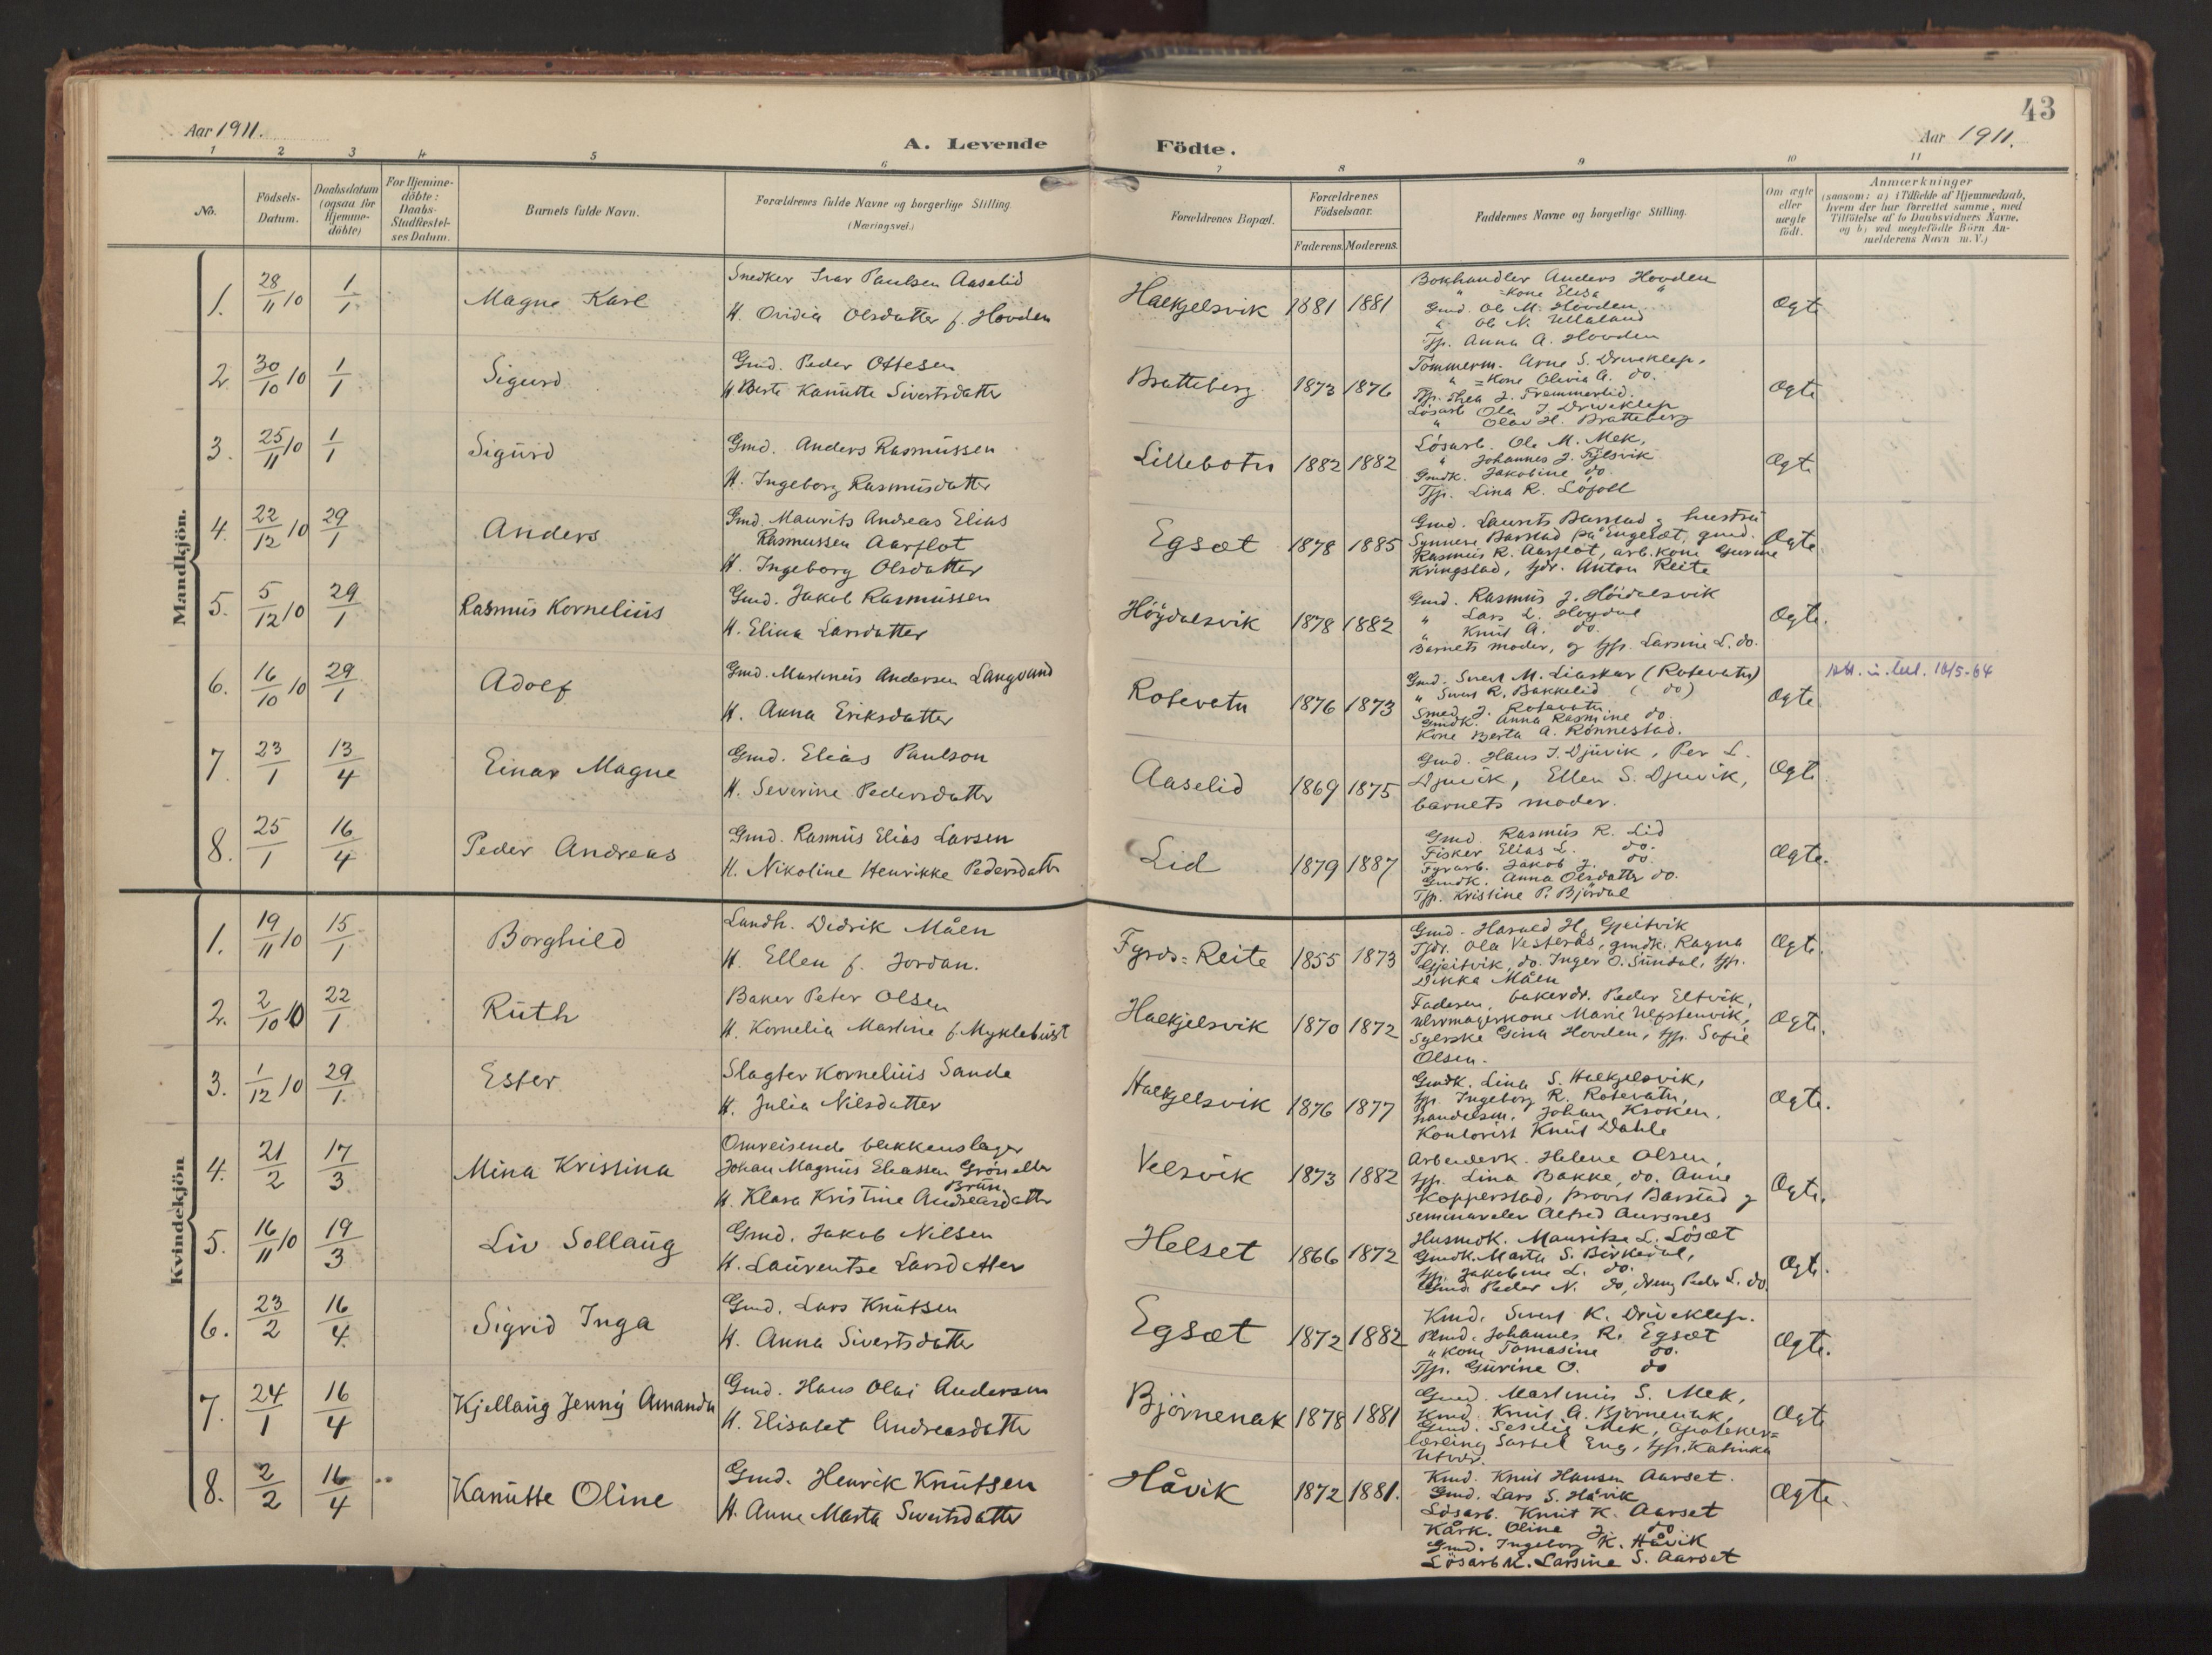 43
Aar 1911.
A. Levende Födte.
Aar 1911.
1 2 3 4 5 6 7 8 9 10 11
No.
Födsels-
Datum.
Daabsdatum
(ogsaa for
Hjemme-
döbte)
For Hjemme-
döbte:
Daabs-
Stadfæstel-
ses Datum.
Barnets fulde Navn.
Forældrenes fulde Navne og borgerlige Stilling.
(Næringsvei.)
Forældrenes Bopæl.
Forældrenes
Födselsaar.
Faderens. Moderens.
Faddernes Navne og borgerlige Stilling.
Om ægte
eller
uægte
födt.
Anmærkninger
(saasom: a) i Tilfælde af Hjemmedaab,
hvem der har forrettet samme, med
Tilföielse af to Daabsvidners Navne,
og b) ved uægtefödte Börn An-
melderens Navn m. V.)
Mandkjön.
1. 28/11 10 1/1 Magne Karl
Snedker Ivar Paulsen Aaselid
H. Ovidia Olsdatter f. Hovden
Halkjelsvik 1881 1881
Bokhandler Anders Hovden
" =Kone Elisa "
Gmd. Ole M. Hovden
" Ole N. Ullaland
Tjp. Anna A. Hovden
Ægte
2. 30/10 10 1/1 Sigurd
Gmd. Peder Ottesen
H. Berte Kanutte Sivertsdatter
Bratteberg 1873 1876
Tömmerm. Arne S. Driveklep.
" =Kone Olivia A. do.
Tjp. Thea J. Frammerlid.
Lösarb. Ola J. Driveklep
" Olav H. Bratteberg
Ægte
3. 25/11 10 1/1 Sigurd
Gmd. Anders Rasmussen
H. Ingeborg Rasmusdatter
Lillebotn 1882 1882
Lösarb. Ole M. Mek,
" Johannes J.
Gmdk. Jakobine do.
Tjp. Lina R. Löfoll
Ægte
4. 22/12 10 29/1 Anders
Gmd. Maurits Andreas Elias
Rasmussen Aarflot
H. Ingeborg Olsdatter
Egsæt 1878 1885
Gmd. Laurits Barstad og hustru
Synnere Barstad på Engeset, gmd.
Rasmus R. Aarflot, arb. kone Gurine
Kringstad, tjdr. Anton Reite
Ægte.
5. 5/12 10 29/1 Rasmus Kornelius
Gmd. Jakob Rasmussen
H. Elina Larsdatter
Höydalsvik 1878 1882
Gmd. Rasmus J. Höidalsvik
" Lars L. Höydal
" Knut A. do.
Barnets moder, og tjp. Larsine L. do.
Ægte.
6. 16/10 10 29/1 Adolf
Gmd. Martinus Andersen Langvand
H. Anna Eriksdatter
Rotevatn 1876 1873
Gmd. Sivert M. Liaskar (Rotevatn)
" Sivert R. Bakkelid ( do)
Smed J. Rotevatn.
Gmdk. Anna Rasmine do.
Kone Berta A. Rönnestad.
Ægte
7. 23/1 13/4 Einar Magne
Gmd. Elias Paulson
H. Severine Pedersdatter
Aaselid 1869 1875
Gmd. Hans J. Djuvik, Per L.
Djuvik, Ellen S. Djuvik,
barnets moder.
Ægte
8. 25/1 16/4 Peder Andreas
Gmd. Rasmus Elias Larsen
H. Nikoline Henrikke Pedersdatter
Lid 1879 1887
Gmd. Rasmus R. Lid
Fisker Elias L. do.
Fyrarb. Jakob J. do.
Gmdk. Anna Olsdatter do.
Tjp. Kristine P. Björdal
Ægte.
Kvindekjön
1. 19/11 10 15/1 Borghild
Landh. Didrik Måen
H. Ellen f. Jordan.
Fyrds=Reite 1855 1873
Gmd. Harald H. Gjeitvik
Tjdr. Ola Vesterås, gmdk. Ragna
Gjeitvik, do. Inger O. Sundal, tjp.
Dikka Måen
Ægte.
2. 2/10 10 22/1 Ruth
Baker Peter Olsen
H. Kornelia Martine f. Myklebust
Halkjelsvik 1870 1872
Faderen, bakerdr. Peder Eltvik,
urmagerkone Marie Ulfstenvik,
Syerske Gina Hovden, tjp. Sofie
Olsen.
Ægte.
3. 1/12 10 29/1 Ester
Slagter Kornelius Sande
H. Julia Nilsdatter
Halkjelsvik 1876 1877
Gmdk. Lina S. Halkjelsvik,
tjp. Ingeborg R. Rotevatn,
handelsm. Johan Kroken,
Kontorist Knut Dahle
Ægte.
4. 21/2 17/3 Mina Kristina
Omreisende blikkenslager
Johan Magnus Eliassen Grön eller
Brun
H. Klara Kristine Andreasdatter
Velsvik 1873 1882
Arbeiderk. Helene Olsen,
tjp. Lina Bakke, do. Anne
Kopperstad, provst Barstad og
seminarelev Alfred Aursnes
Ægte.
5. 16/11 10 19/3 Liv Sollaug
Gmd. Jakob Nilsen
H. Laurentse Larsdatter
Helset 1866 1872
Husmdk. Mauritse L. Lösæt
Gmdk. Marta S. Birkedal,
tjp. Jakobine L. do.
Gmd. Peder N. do, dreng Peder L. do.
Ægte.
6. 23/2 16/4 Sigrid Inga
Gmd. Lars Knutsen
H. Anna Sivertsdatter
Egsæt 1872 1882
Kmd. Sivert K. Driveklep.
Plmd. Johannes R. Egsæt
" Kone Tomasine do.
Tjp. Gurine O. do
Ægte.
7. 24/1 16/4 Kjellaug Jenny Amanda
Gmd. Hans Olai Andersen
H. Elisabet Andreasdatter
Björnenak 1878 1881
Gmd. Martinus S. Mek,
Kmd. Knut A. Björnenak,
Gmd. Mek, Apoteker=
lærling Eng, tjp. Katinka
Ægte
8. 2/2 16/4 Kanutte Oline
Gmd. Henrik Knutsen
H. Anne Marta Sivertsdatter
Håvik 1872 1881.
Kmd. Knut Hansen Aarset.
Gmd. Lars S. Håvik
Lösarb. Knut K. Aarset
Kårk. Oline J. do
Gmd. Ingeborg K. Håvik
Lösarb K. Larsine S. Aarset
Ægte.